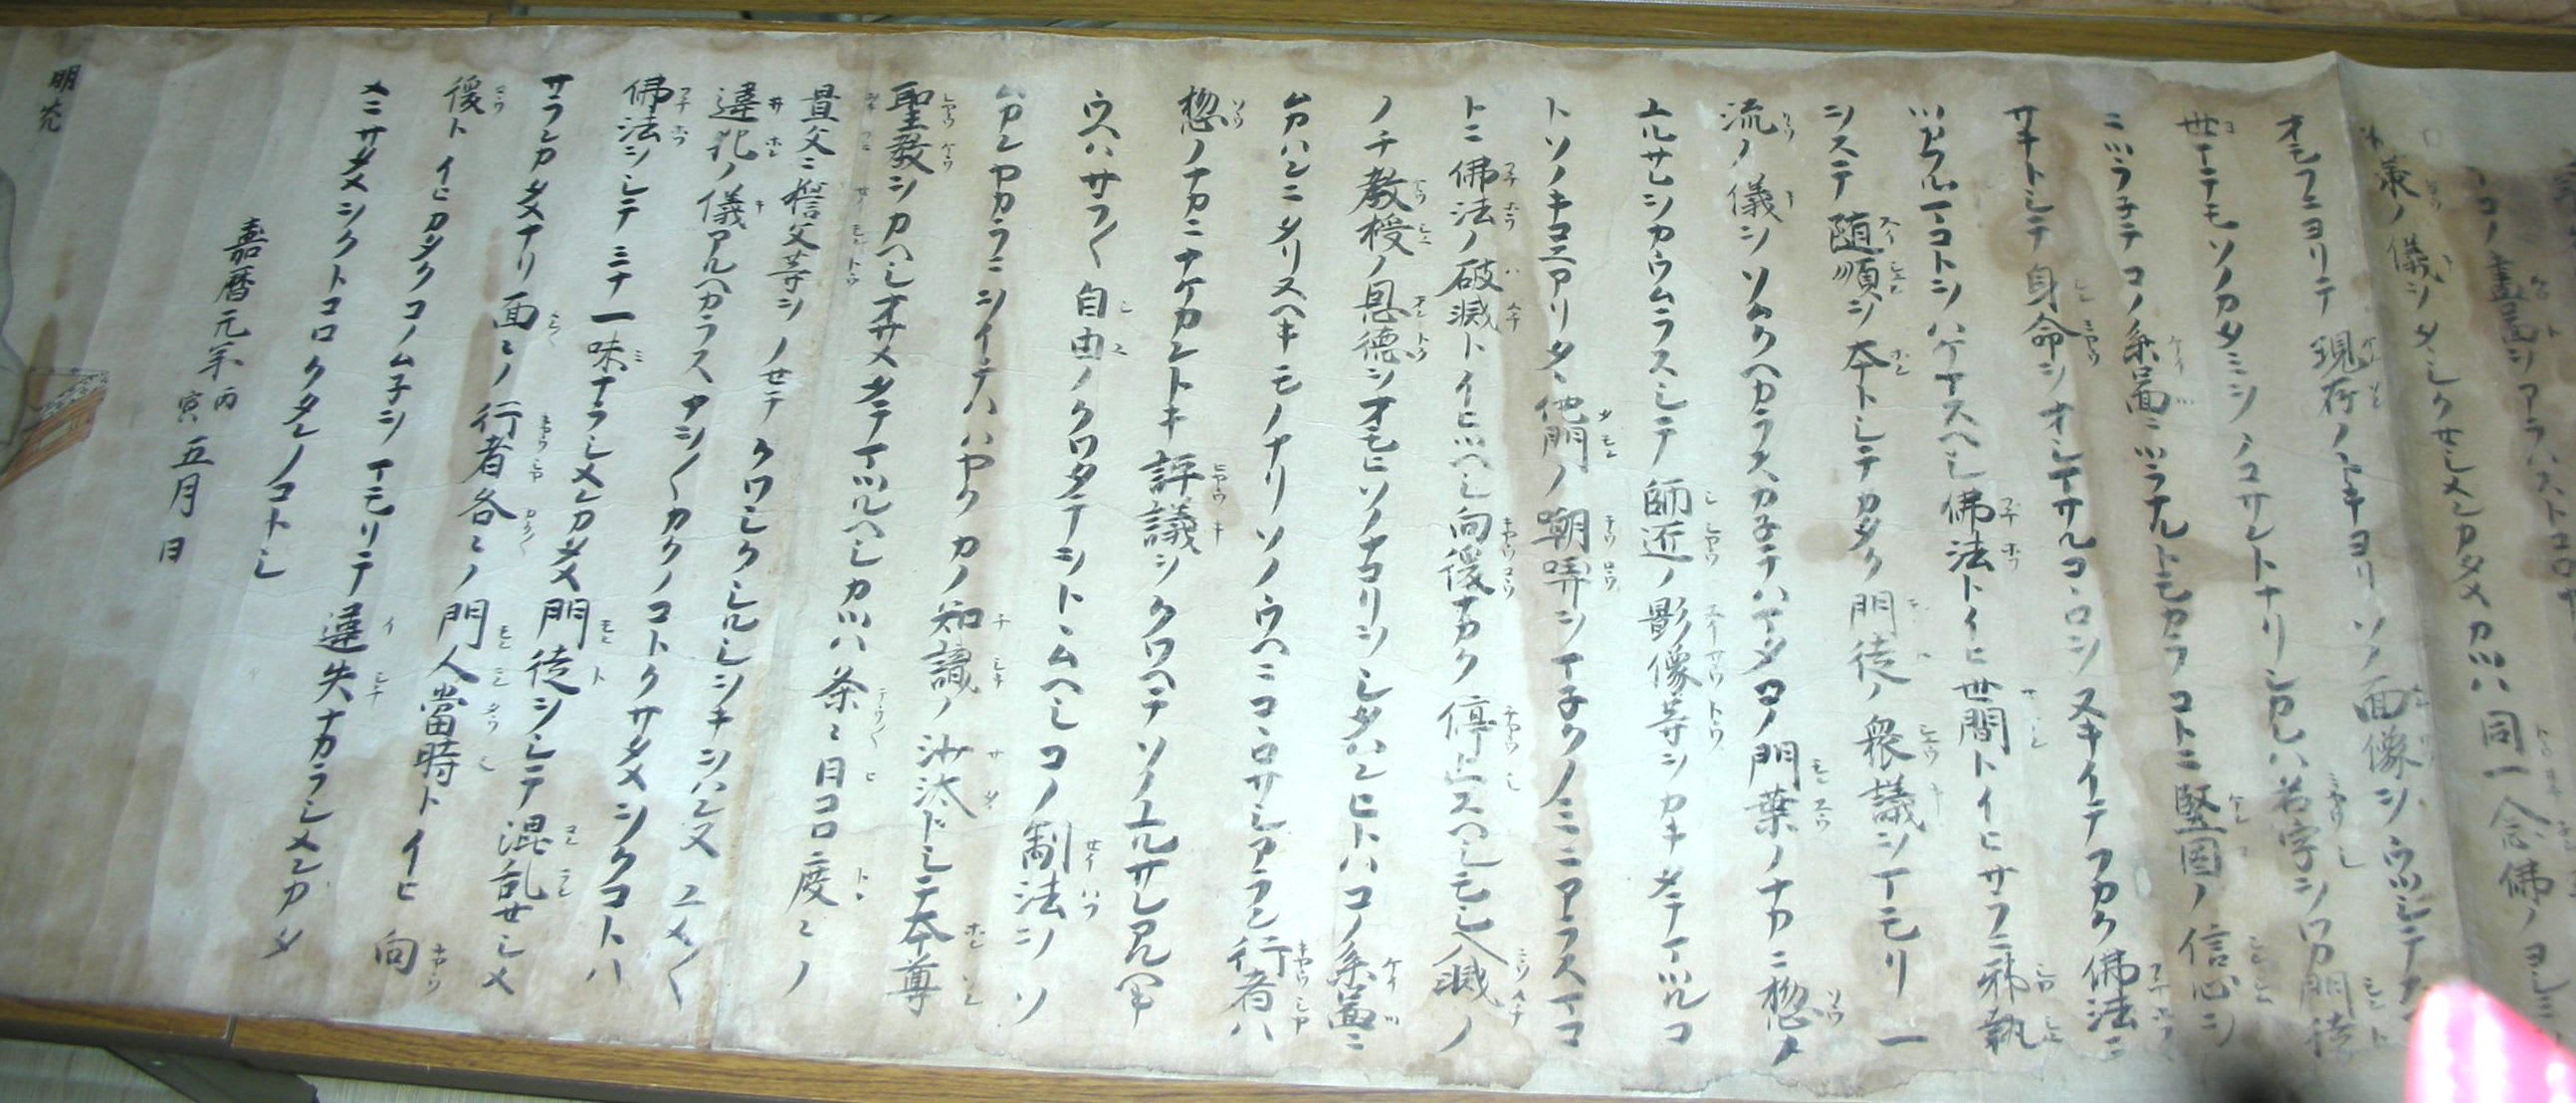 コノ畫圖ヲアラハストコロナリ
ノ儀ヲタヽシクセシメンカタメカツハ同一念佛ノヨシミヲ
オモフニヨリテ現存ノトキヨリソノ面像ヲウツシテ
世マテモソノカタミヲノコサントナリシカレハ名字ヲワカ門徒
ニツラ子テコノ系啚ニツラナルトモカラコトニ堅固ノ信心ヲ
サキトシテ身命ヲオシマサルコヽロヲヌキイテフカク佛法ニ
ツカフルマコトヲハケマスヘシ佛法トイヒ世間トイヒサラニ邪執
ヲステ随順ヲ本トシテカタク門徒ノ衆議ヲマモリ一
流ノ儀ヲソムクヘカラスカ子テハマタコノ門葉ノナカニ惣ノ
ユルサレヲカウムラスシテ師匠ノ影像等ヲカキタテマツルコ
トソノキコエアリタヽ他門ノ嘲哢ヲマ子クノミニアラスマコ
トニ佛法ノ破滅トイヒツヘシ向後ナカク停止スヘシモシ入滅ノ
ノチ教授ノ恩徳ヲオモヒソノナコリヲシタハンヒトハコノ系啚ニ
ムカハンニタリヌヘキモノナリソノウヘニコヽロサシアラン行者ハ
惣ノナカニナケカントキ評議ヲクワヘテソノユルサレアルヘキ
ウヘハサラ〱自由ノクワタテヲトヽムヘシコノ制法ヲソ
ムカンヤカラニヲイテハハヤクカノ知識ノ沙汰トシテ本尊
聖教ヲカヘシオサメタテマツルヘシカツハ条ヽ日コロ度ヽノ
置文ニ誓文等ヲノセテクワシクシルシヲキヲハンヌユメ〱
違犯ノ儀アルヘカラスアヲ〱カクノコトクサタメヲクコトハ
佛法ヲシテミナ一味ナラシメンカタメ門徒ヲシテ混乱セシメ
サランカタメナリ面ヽノ行者各ヽノ門人當時トイヒ向
後トイヒカタクコノムネヲマモリテ違失ナカラシメンカタ
メニサタメヲクトコロクタンノコトシ
嘉暦元年丙寅五月日
明光